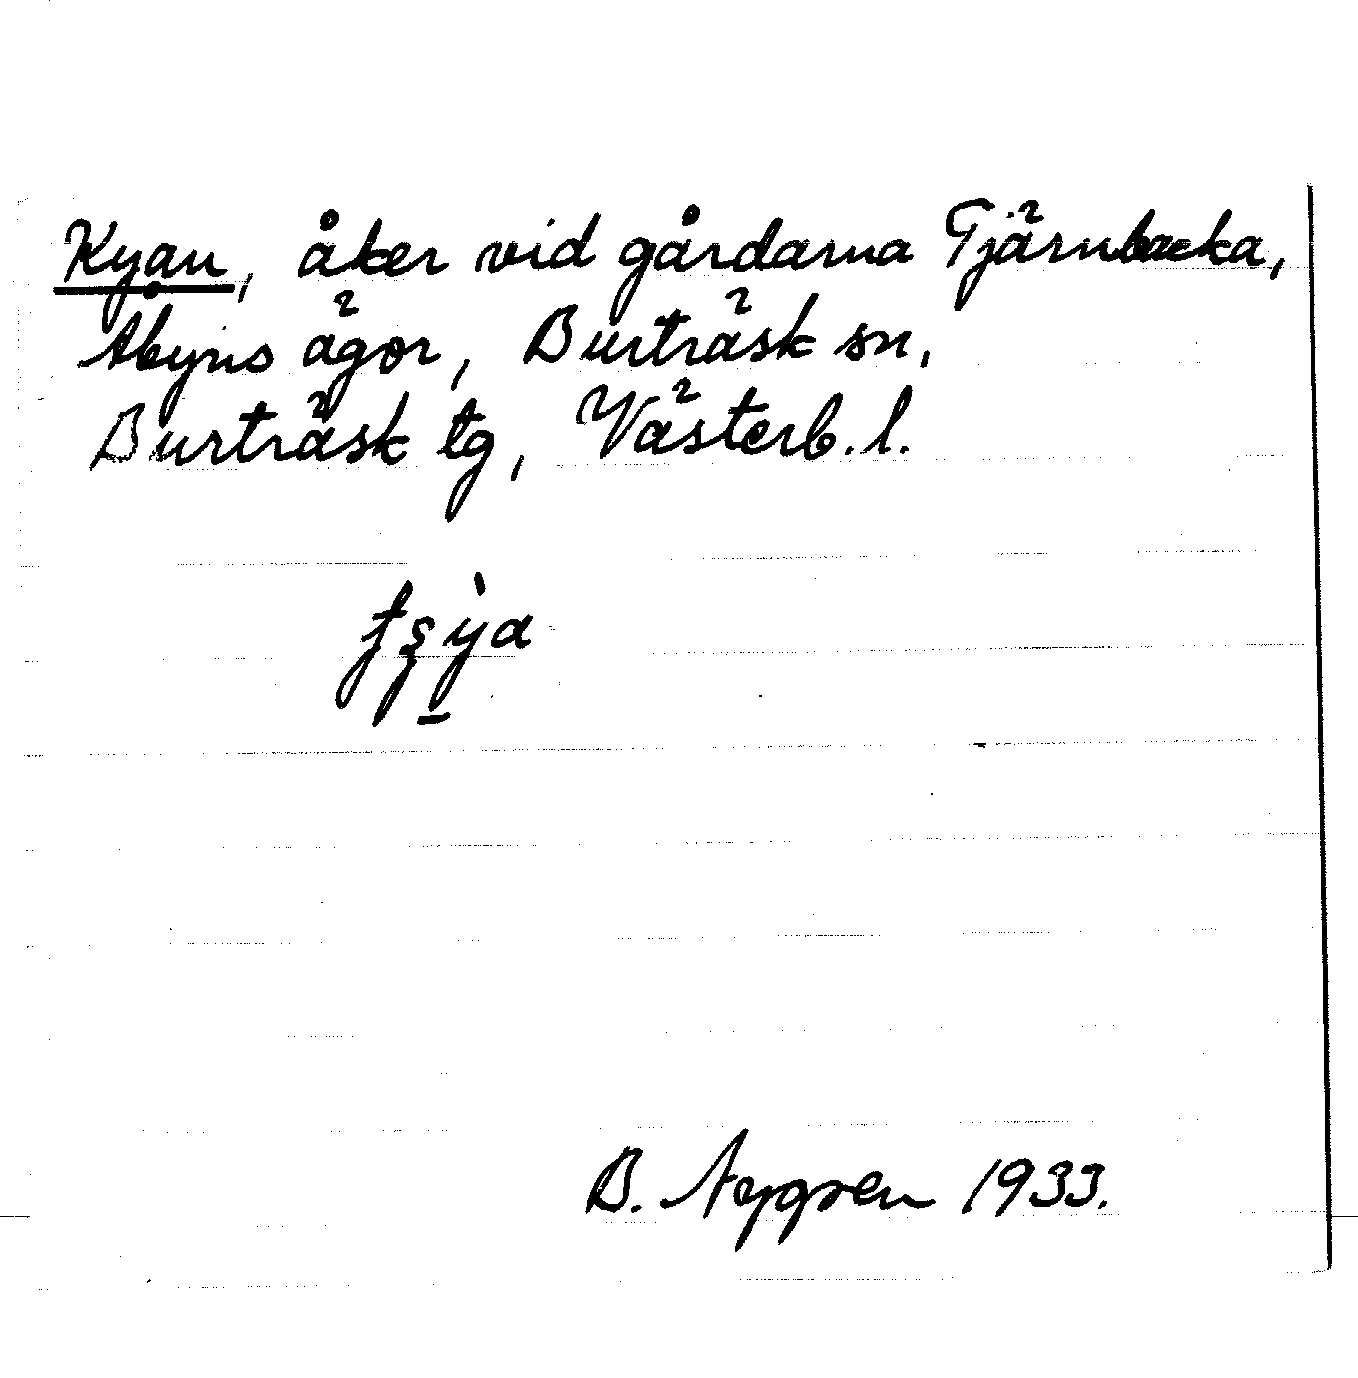 Kyan, åker vid gårdarna Tjärnbacka,
Åbyns ägor, Burträsk sn,
Burträsk tg, Västerb. l.
B. Nygren 1933.